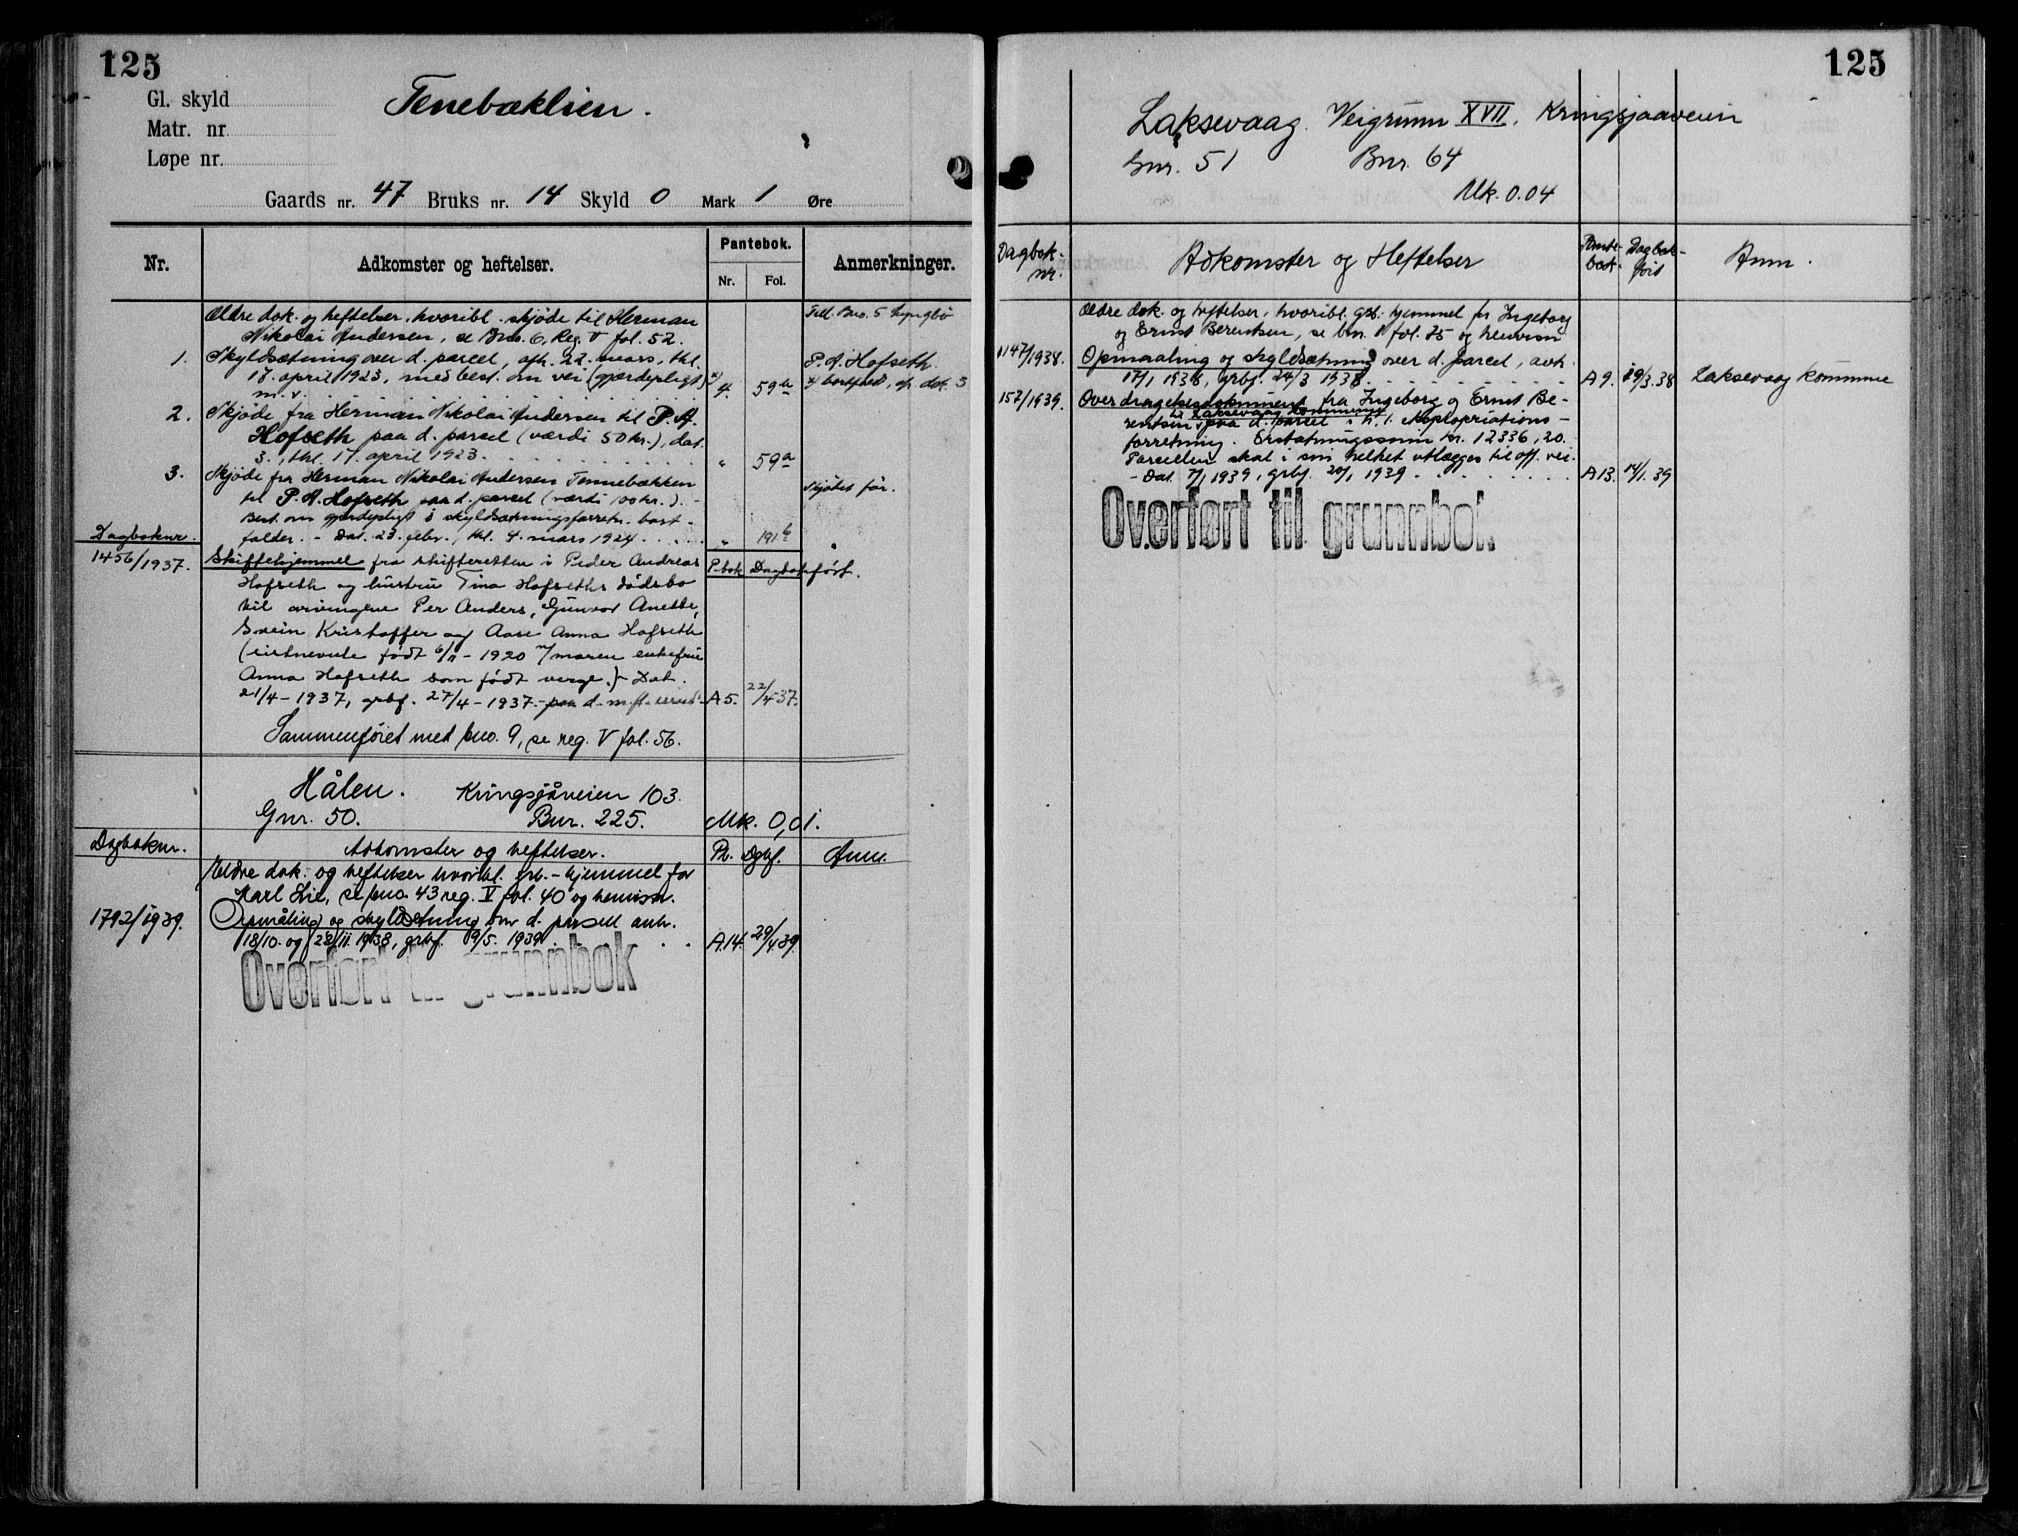 125
Gl. skyld
Matr. nr.
Løpe nr.
Tenebæklien.
Gaards nr. 47 Bruks nr. 14 Skyld 0 Mark 1 Øre
Nr.
Adkomster og heftelser.
Pantebok.
Nr.
Fol.
Anmerkninger.
Ældre dok. og heftelser, hvoribl. skjøde til Herman
Nikolai Andersen, se Bno. 6, Reg. V fol. 52.
Bno. 5 Lyngbø
1. Skyldsætning over d. parcel, afh. 22. mars, thl. P. A. Hofseth
17. april 1923, med best. om vei (gjærdepligt x) x) bortfald, cfr. dok. 3
m. v. 4. 59a
2. Skjøde fra Herman Nikolai Andersen til P. A.
Hofseth paa d. parcel (værdi 50 kr.), dat.
3., thl. 17. april 1923. " 59a
3. Skjøde fra Herman Nikolai Andersen Tennebækken Skjødet før.
til P. A. Hofseth paa d. parcel (værdi 100 kr.). -
Best. om gjærdepligt i skyldsætningsforretn. bort-
falder. - Dat. 23. febr., thl. 4. mars 1924. " 191b
Dagboknr. P-bok Dagbokført.
1456/1937. Skiftehjemmel fra skifteretten i Peder Andreas
Hofseth og hustru Tina Hofseths dødsbo
til arvingene Per Anders, Gunvor Anette,
Svein Kristoffer og Aase Anna Hofseth
(sistnevnte født 6/11 - 1920 m/moren enkefrue
Anna Hofseth som født verge.) - Dat.
21/4 - 1937, grbf. 27/4 - 1937. - paa d. A5. 22/4 37.
Sammenføiet med bno. 9, se reg. V fol. 56.
Hålen. Kringsjåveien 103.
Gnr. 50. Bnr. 225. Mk. 0,01.
Dagboknr. Adkomster og heftelser. Pb. Dgbf. Anm.
Eldre dok. og heftelser hvoribl. grb.-hjemmel for
Karl Lie, se bno. 43 reg. V fol. 40 og henvisn.
1792/1939. Opmåling og skyldsetning over d. parsell avh.
18/10. og 22/11. 1938, grbf. 9/5. 1939 A.14. 29/4 39.
Overført til grunnbok
125
Laksevaag. Veigrunn XVII. Kringsjaaveien
Gnr. 51 Bnr. 64
Mk. 0.04
Dagbok-
nr.
Adkomster og Heftelser
Pante-
bok.
Dagbok-
ført
Anm.
Ældre dok. og heftelser, hvoribl. grb. hjemmel for Ingeborg
og Ernst Berentsen, se bnr. 11 fol. 75 og henvisn
1147/1938. Opmaaling og skyldsætning over d. parcel, avh.
17/1 1938, grbf. 24/3 1938 A9. 19/3. 38 Laksevaag kommune
157/1939. Overdragelsesdokument fra Ingeborg og Ernst Be-
til Laksevaag kommune
rentsen paa d. parcel i h. t. Expropriations-
forretning. Erstatningssum kr. 12336,20.
Parcellen skal i sin helhet utlægges til off. vei.
- Dat. 7/1 1939, grbf. 20/1 1939 A13. 14/1. 39
Overført til grunnbok